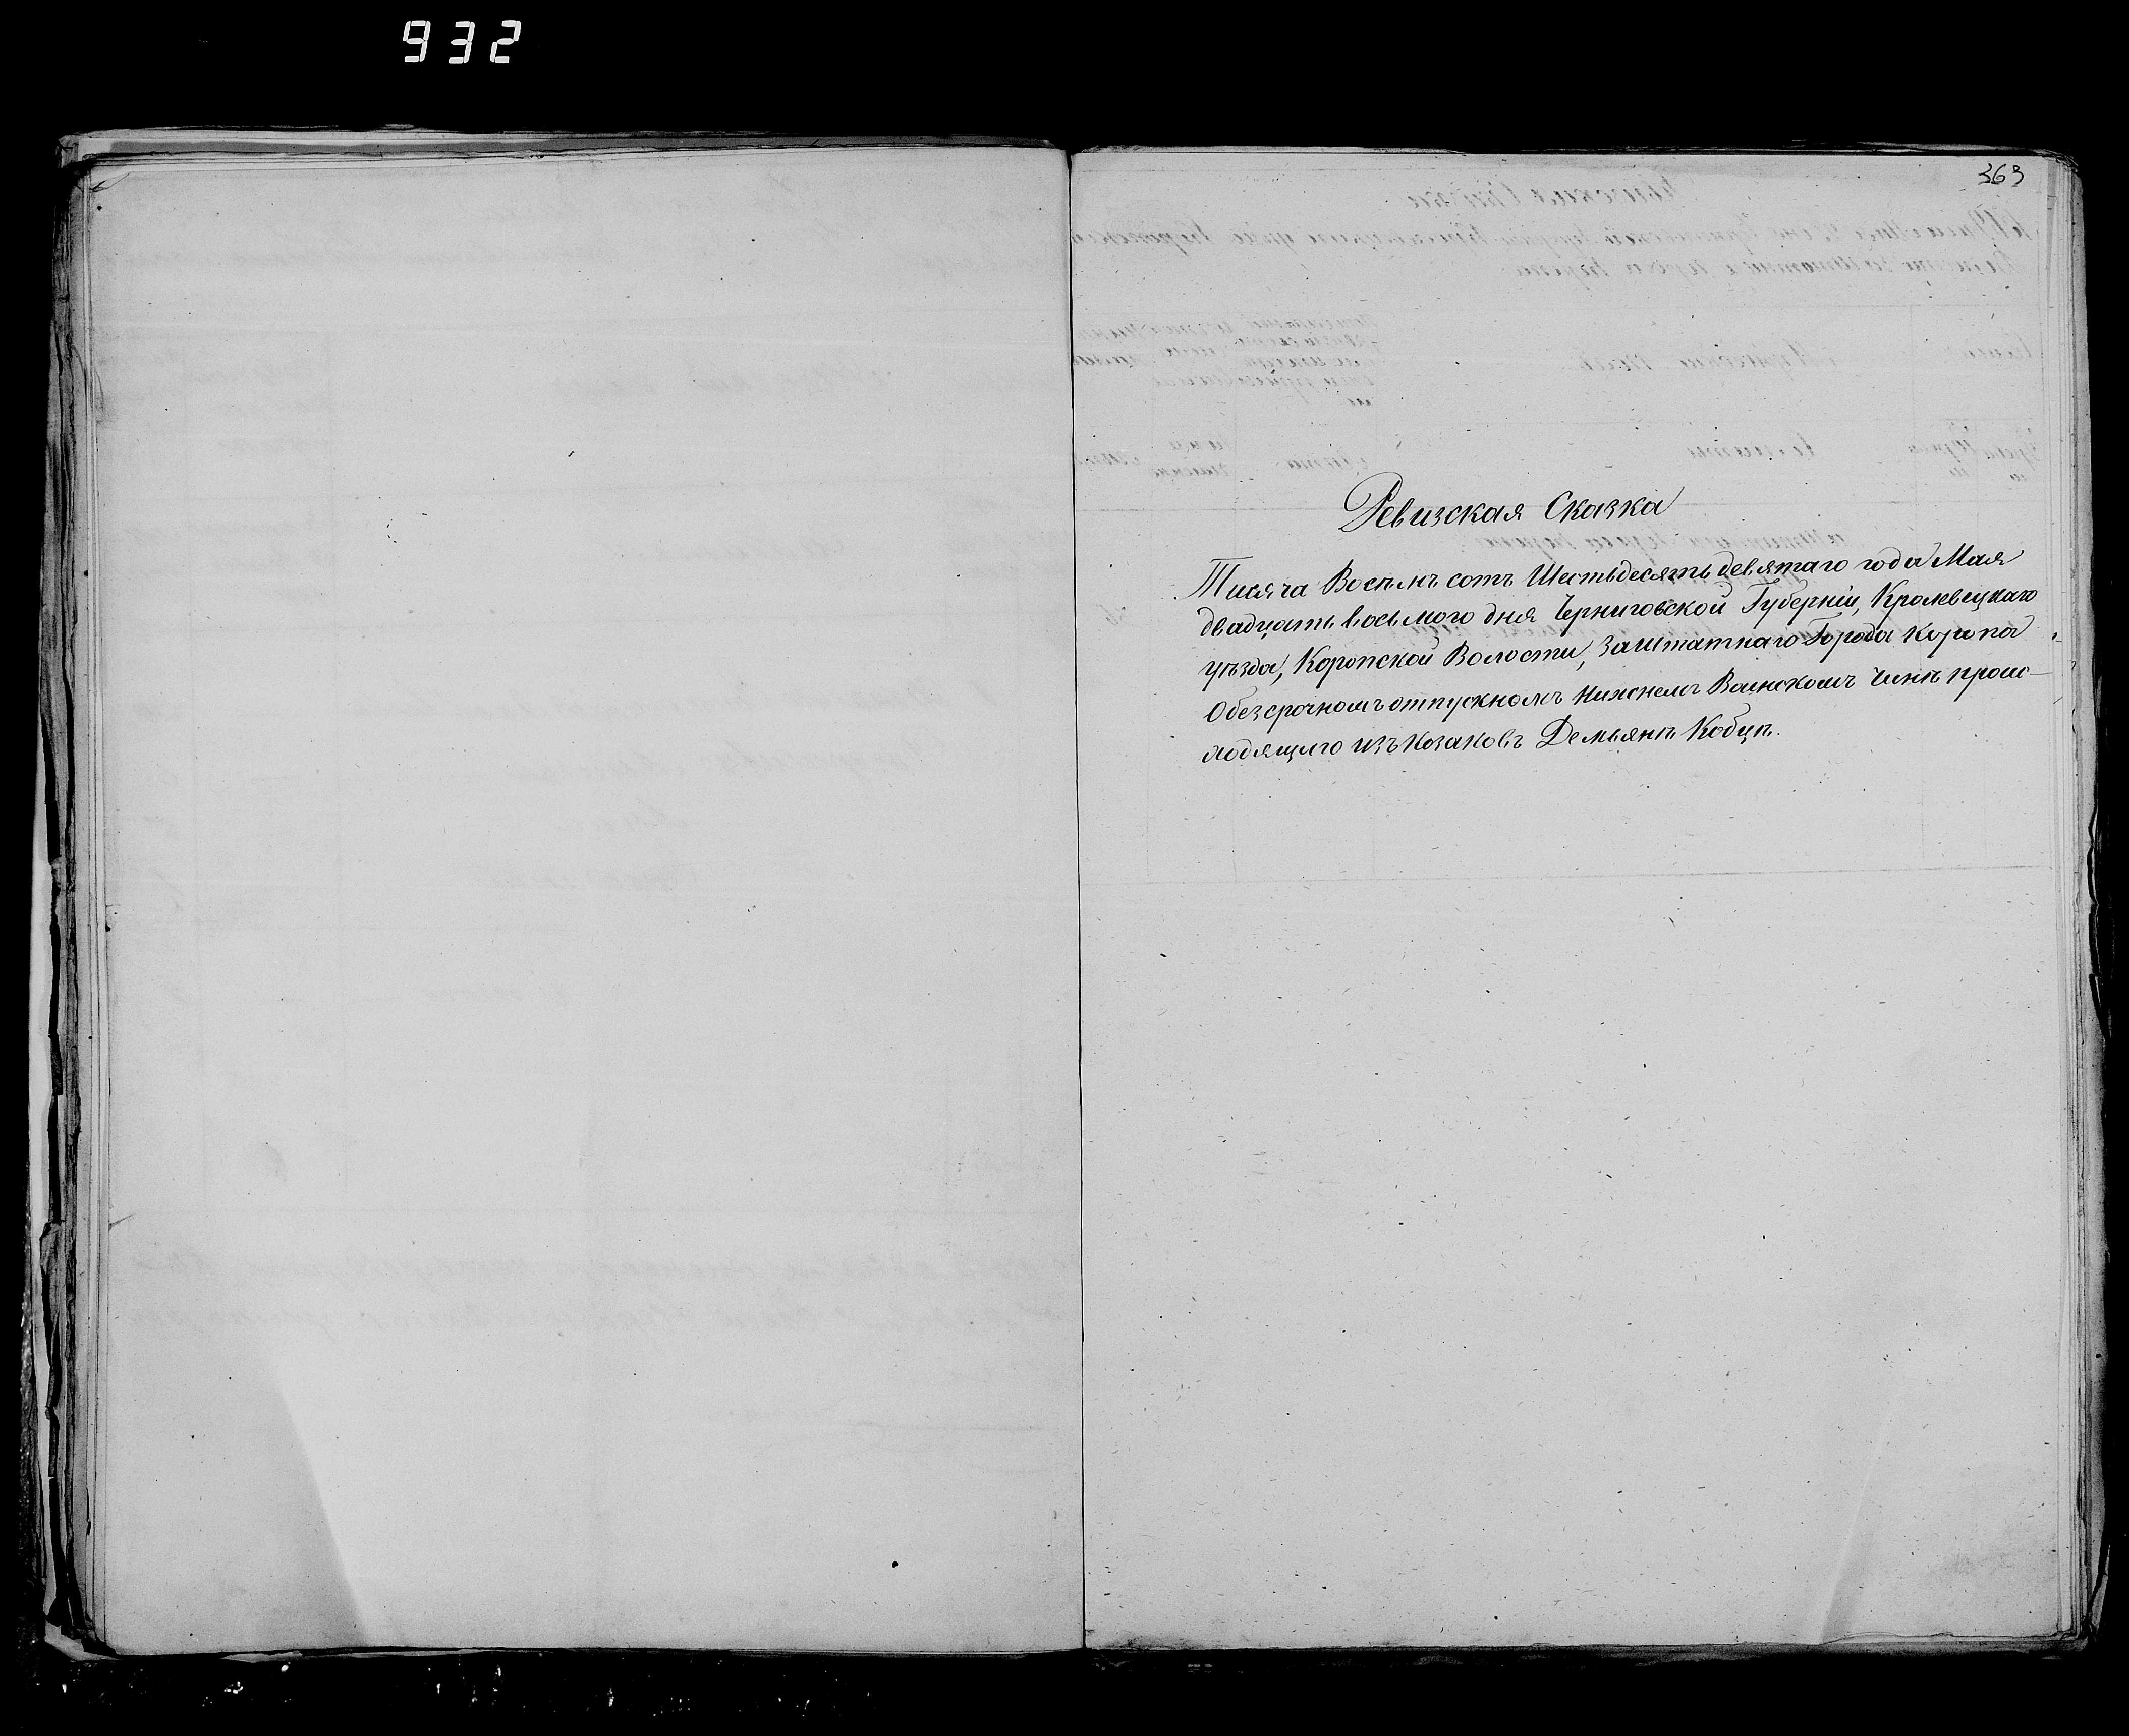 932
363
Ревизская Сказка
Тисяча Восемъ сотъ Шестьдесять девятаго года Мая
двадцать восьмого дня Черниговской Губерніи, Кролевецкаго
уѣзда, Коропской Волости, Заштатнаго Города Коропа
О безсрочномъ отпускномъ Нижнемъ Воинскомъ Чинѣ проис-
ходящего изъ Козаковъ Демьянѣ Кобцѣ.